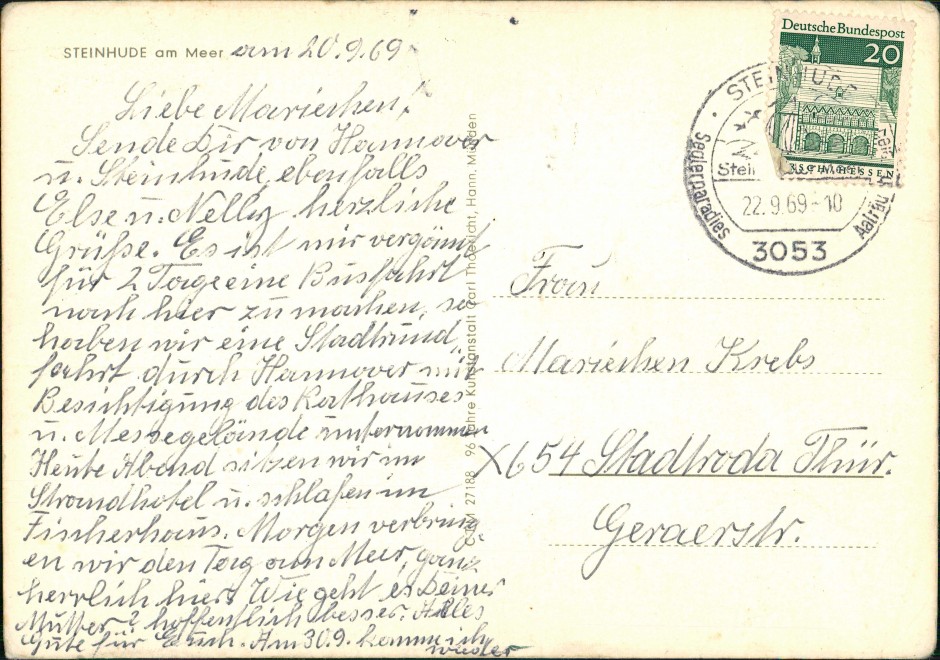 STEINHUDE am Meer am 20.9.69
Liebe Mariechen!
Sende Dir von Hannover
u. Steinhude, ebenfalls
Else u. Nelly herzliche
Grüße. Es ist mir vergönnt
für 2 Tage eine Busfahrt
nach hier zu machen, so
haben wir eine Stadtrund„
fahrt durch Hannover mit
Besichtigung des Rathauses
u. Messegelände unternommen
Heute Abend sitzen wir im
Strandhotel u. schlafen im
Fischerhaus. Morgen verbring
en wir den Tag am Meer, ganz
herrlich hier. Wie geht es Deiner
Mutter? hoffentlich besser. Alles
Gute für Euch. Am 30.9. komme ich
wieder
96 Jahre Kunstanstalt Carl Thoericht, Hann. Münden
27188
Deutsche Bundespost
20
LORSCH/HESSEN
STEINHUDE
Seglerparadies
22.9.69-10
3053
Frau
Mariechen Krebs
X654 Stadtroda Thür.
Geraerstr.